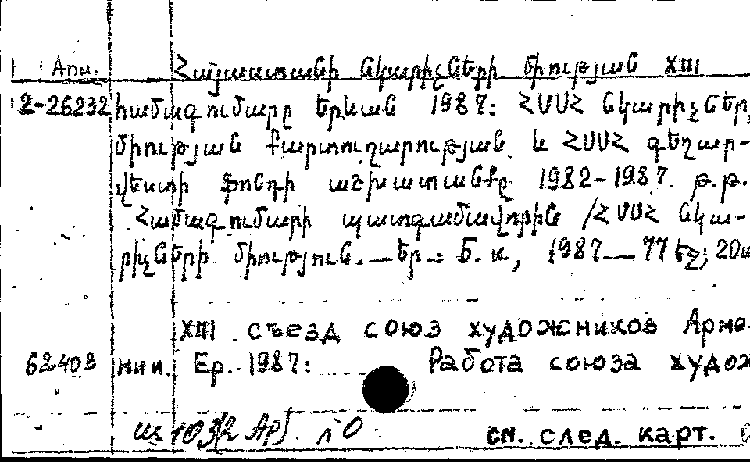 Арм. Հայաստանի նկարիչների միության XIII
2-26232 համագումարը Երևան 1987: ՀՍՍՀ նկարիչներ,
միության քարտուղարության և ՀՍՍՀ գեղար-
վեստի ֆոնդի աշխատանքը 1982-1987 թ.թ.
Համագումարի պատգամավորին /ՀՍՍՀ նկա-
րիչների միություն. — Եր.: Б. и, 1987 — 77 էջ; 20
XIII съезд союз художников Арме-
62403 нии. Ер. 1987: Работа союза худож
см. след. карт.